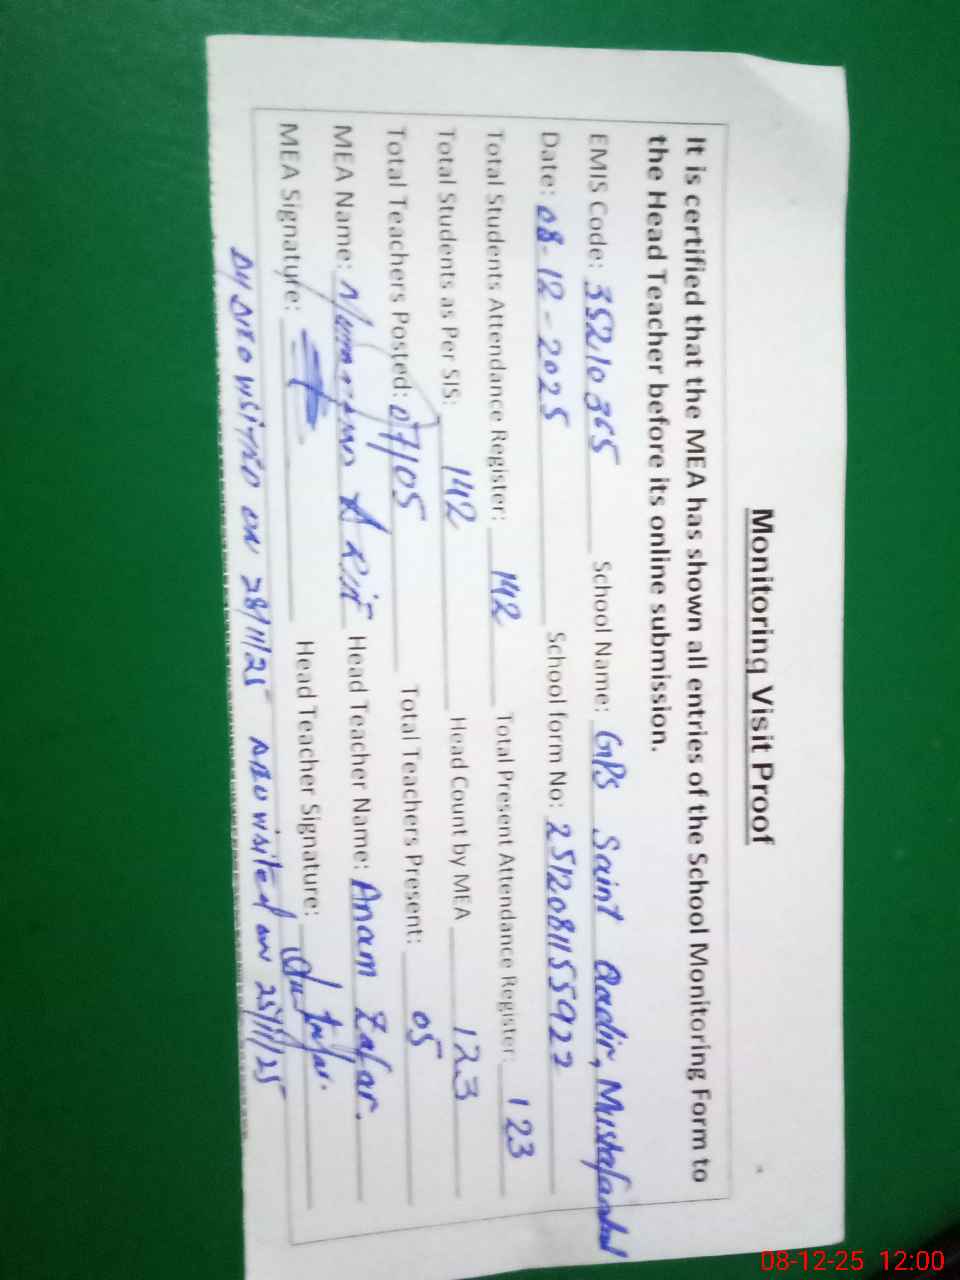 Monitoring Visit Proof
It is certified that the MEA has shown all entries of the School Monitoring Form to
the Head Teacher before its online submission.
EMIS Code: 35210365 School Name: GPS Saint Qadir, Mustafaabad
Date: 08-12-2025 School form No: 2512081155922
Total Students Attendance Register: 142 Total Present Attendance Register: 123
Total Students as Per SIS: 142 Head Count by MEA 123
Total Teachers Posted: 07/05 Total Teachers Present: 05
MEA Name: Head Teacher Name: Anam Zafar.
MEA Signature: Head Teacher Signature:
on 28/11/25 AEO visited on 25/11/25
08-12-25 12:00